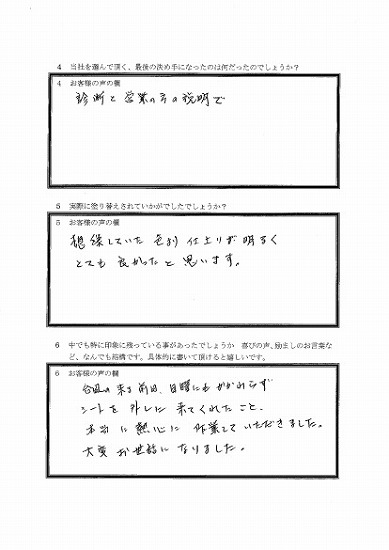 4 当社を選んで頂く、最後の決め手になったのは何だったのでしょうか？
4 お客様の声の欄
診断と営業の方の説明で
5 実際に塗り替えされていかがでしたでしょうか？
5 お客様の声の欄
想像していた色より仕上りが明るく
とても良かったと思います。
6 中でも特に印象に残っている事があったでしょうか 喜びの声、励ましのお言葉な
ど、なんでも結構です。具体的に書いて頂けると嬉しいです。
6 お客様の声の欄
台風の来る前日、日曜にもかかわらず
シートを外しに来てくれたこと、
本当に熱心に作業していただきました。
大変お世話になりました。